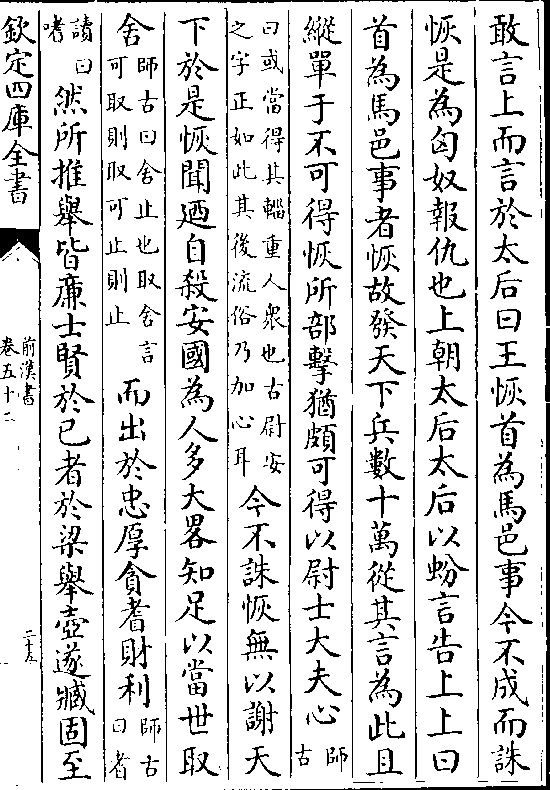 敢言上而言於太后曰王恢首為馬邑事今不成而誅
恢是為匈奴報仇也上朝太后太后以蚡言告上上曰
首為馬邑事者恢故發天下兵數十萬從其言為此且
縱單于不可得恢所部擊猶頗可得以尉士大夫心師古
曰或當得其輜重人衆也古尉安
之字正如此其後流俗乃加心耳今不誅恢無以謝天
下於是恢聞廼自殺安國為人多大畧知足以當世取
舍師古曰舍止也取舍言
可取則取可止則止而出於忠厚貪耆財利師古曰耆
讀曰
嗜然所推舉皆廉士賢於己者於梁舉壺遂臧固至
欽定四庫全書
前漢書
卷五十二
二十五